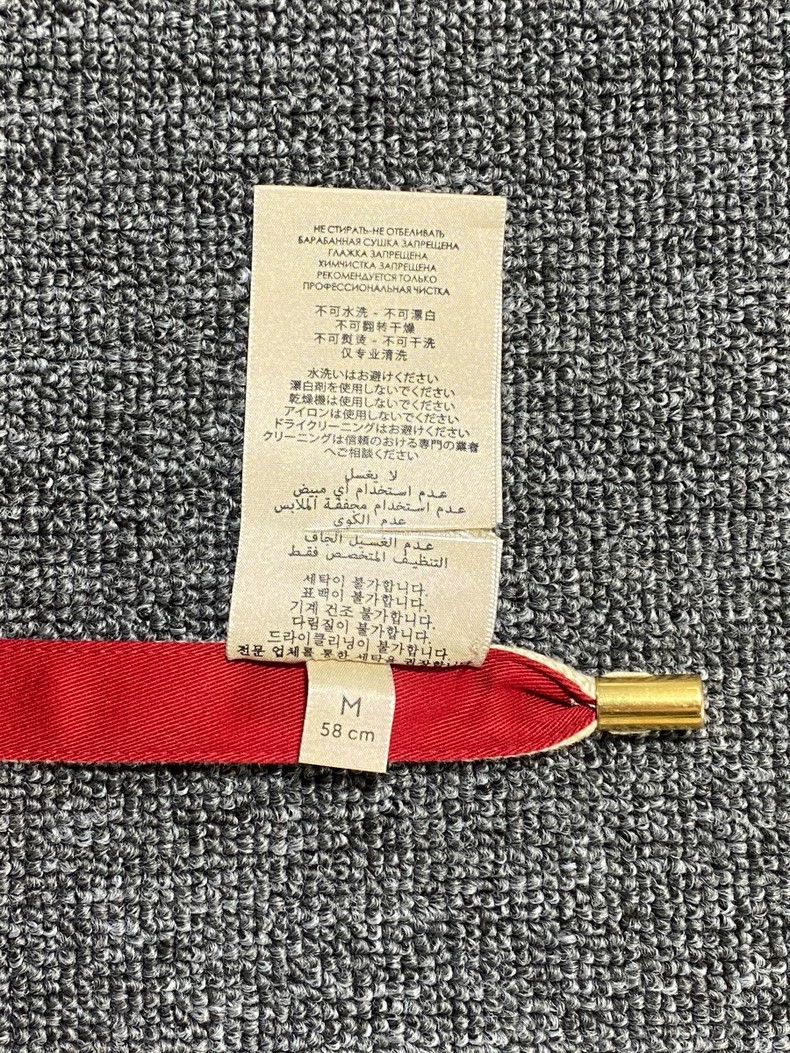 НЕ СТИРАТЬ-НЕ ОТБЕЛИВАТЬ
БАРАБАННАЯ СУШКА ЗАПРЕЩЕНА
ГЛАЖКА ЗАПРЕЩЕНА
ХИМЧИСТКА ЗАПРЕЩЕНА
РЕКОМЕНДУЕТСЯ ТОЛЬКО
ПРОФЕССИОНАЛЬНАЯ ЧИСТКА
不可水洗 - 不可漂白
不可翻转干燥
不可熨烫 - 不可干洗
仅专业清洗
水洗いはお避けください
漂白剤を使用しないでください
乾燥機は使用しないでください
アイロンは使用しないでください
ドライクリーニングはお避けください
クリーニングは信頼のおける専門の業者
へご相談ください
لا يغسل
عدم استخدام أي مبيض
عدم استخدام مجففة الملابس
عدم الكوي
عدم الغسيل الجاف
التنظيف المتخصص فقط
세탁이 불가합니다.
표백이 불가합니다.
기계 건조 불가합니다.
다림질이 불가합니다.
드라이클리닝이 불가합니다
전문 업체를 통한 세탁을 권장합니다
M
58 cm